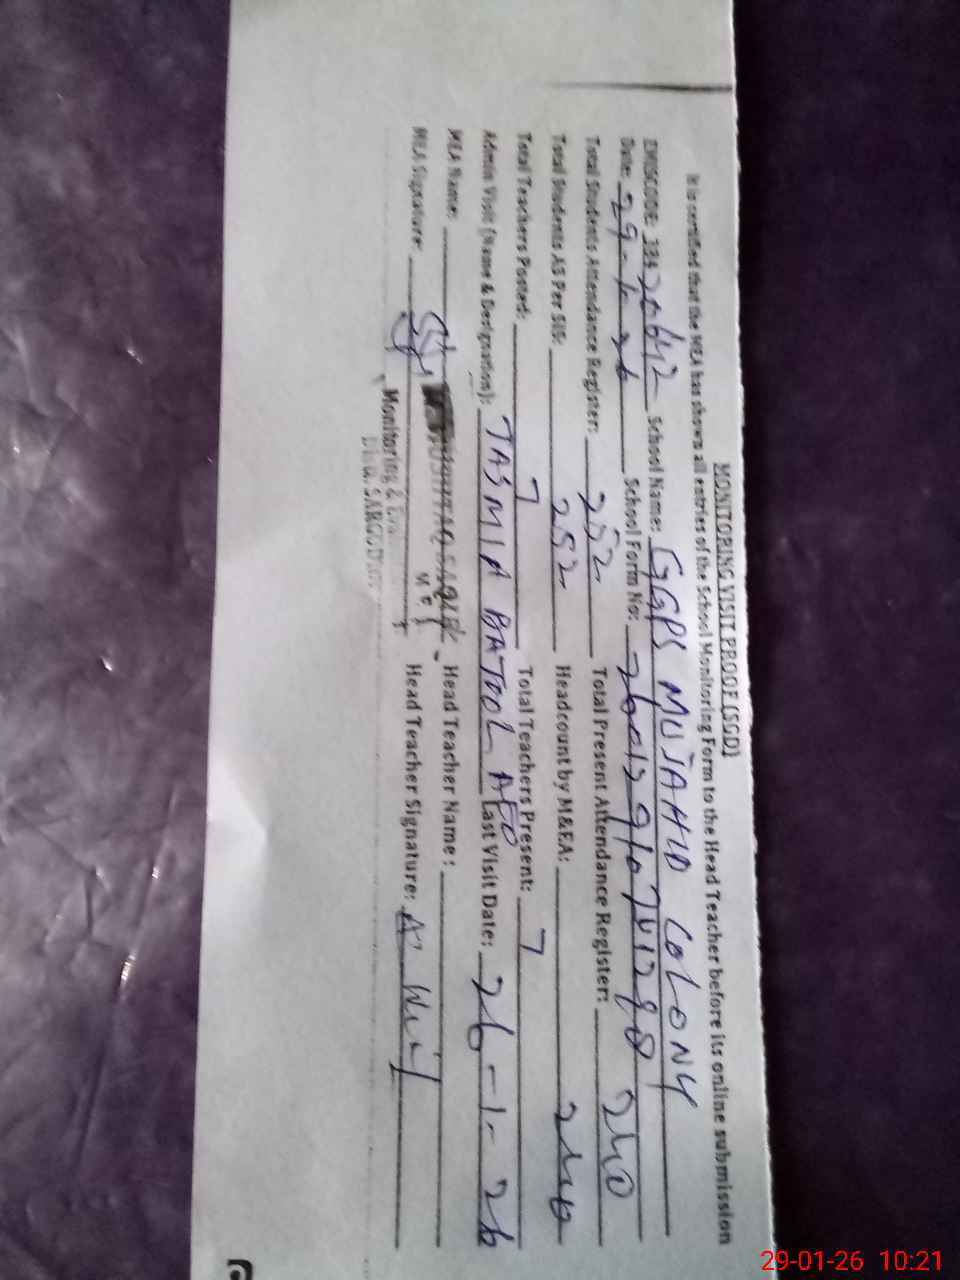 MONITORING VISIT PROOF (SGD)
It is certified that the MEA has shown all entries of the School Monitoring Form to the Head Teacher before its online submission
EMISCODE: School Name: GGPS MUJAHID COLONY
Date: 29-1-26 School Form No:
Total Students Attendance Register: 252 Total Present Attendance Register: 240
Total Students AS Per SIS: 252 Headcount by M&EA: 240
Total Teachers Posted: 7 Total Teachers Present: 7
Admin Visit (Name & Designation): TASMIA BATOOL AEO Last Visit Date: 26-1-26
MEA Name: Head Teacher Name:
MEA Signature: Head Teacher Signature:
Monitoring &
Distt. SARGODHA
29-01-26 10:21